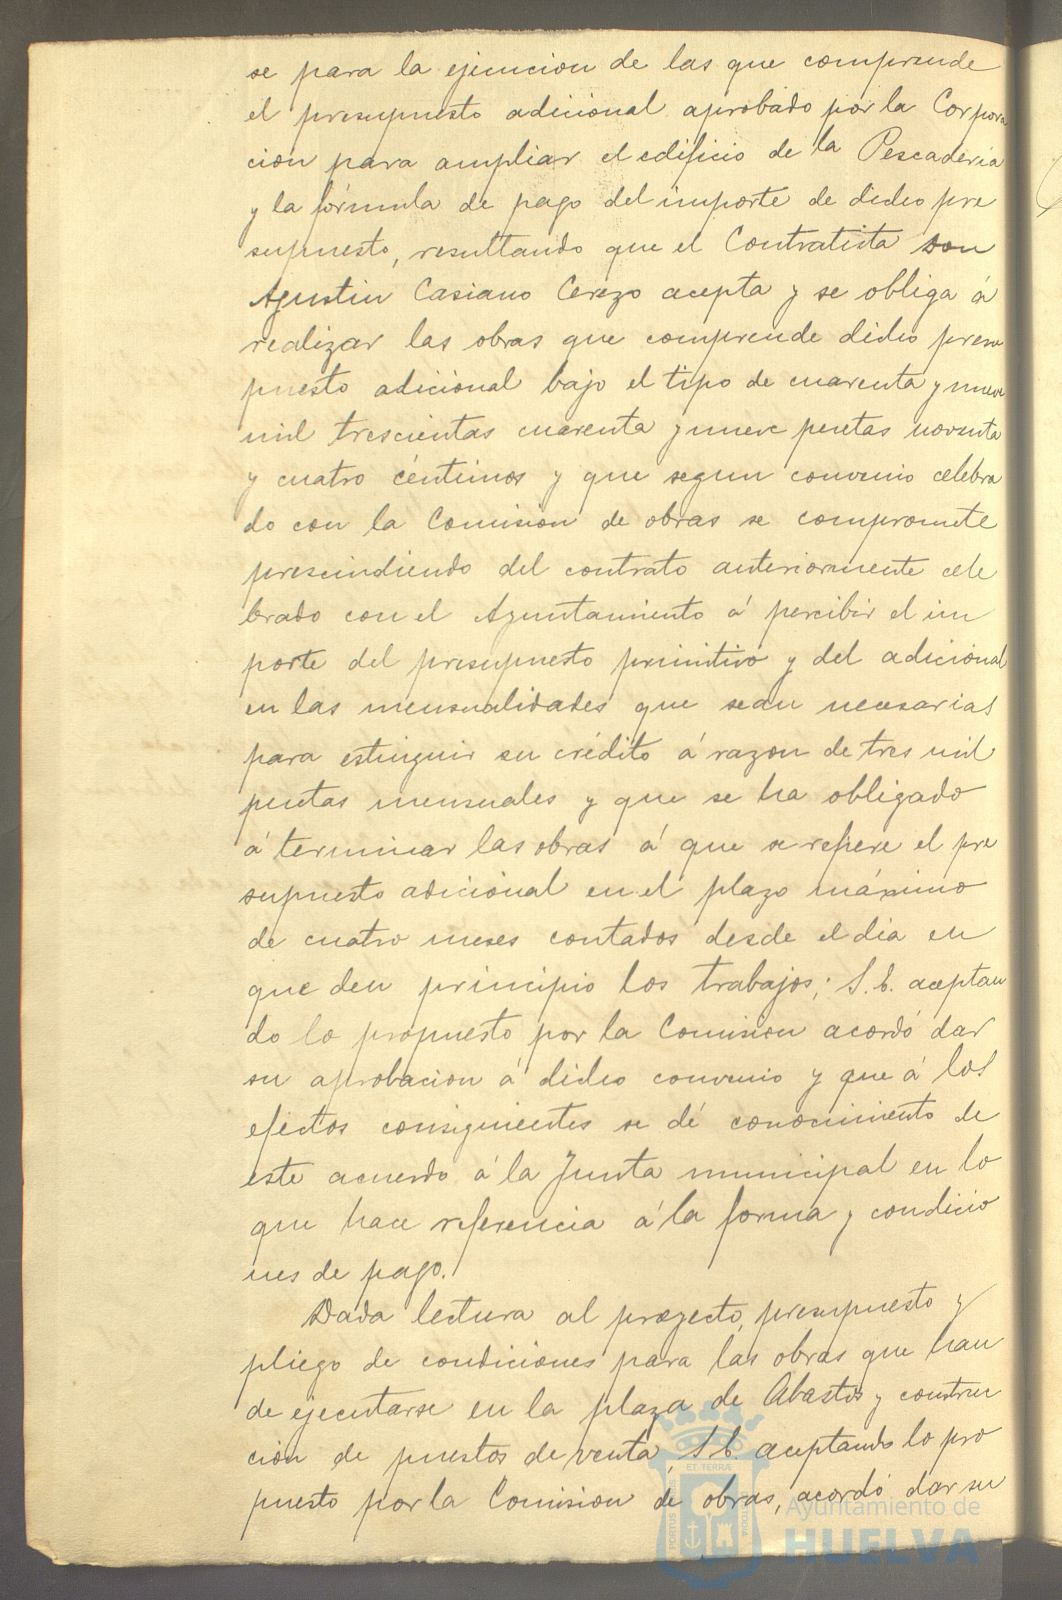 se para la ejecucion de las que comprende
el presupuesto adicional aprobado por la Corpora
cion para ampliar el edificio de la Pescaderia
y la fórmula de pago del importe de dicho pre
supuesto, resultando que el Contratista Don
Agustin Casiano Cerezo acepta y se obliga á
realizar las obras que comprende dicho presu
puesto adicional bajo el tipo de cuarenta y nueve
mil trescientas cuarenta y nueve pesetas noventa
y cuatro céntimos y que segun convenio celebra
do con la Comision de obras se compromete
prescindiendo del contrato anteriormente cele
brado con el Ayuntamiento á percibir el im
porte del presupuesto primitivo y del adicional
en las mensualidades que sean necesarias
para estinguir su crédito á razon de tres mil
pesetas mensuales y que se ha obligado
á terminar las obras á que se refiere el pre
supuesto adicional en el plazo máximo
de cuatro meses contados desde el dia en
que den principio los trabajos; S.E. aceptan
do lo propuesto por la Comision acordó dar
su aprobacion á dicho convenio y que á los
efectos consiguientes se dé conocimiento de
este acuerdo á la Junta municipal en lo
que hace referencia á la forma y condicio
nes de pago.
Dada lectura al proyecto, presupuesto y
pliego de condiciones para las obras que han
de ejecutarse en la plaza de Abastos y construc
cion de puestos de venta, S.E. aceptando lo pro
puesto por la Comision de obras, acordó dar su
Ayuntamiento de
HUELVA